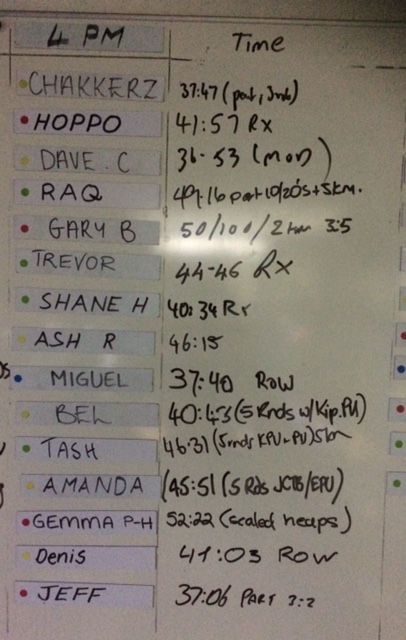 4 PM Time
CHAKKERZ 37:47 (part, 3rds)
HOPPO 41:57 Rx
DAVE . C 36-53 (mon)
RAQ 49:16 part 10/20's + 5km.
GARY B 50/100/2km 3:5
TREVOR 44-46 Rx
SHANE H 40:34 Rx
ASH R 46:15
MIGUEL 37:40 ROW
BEL 40:43 (5 Rnds w/Kip.PU)
TASH 46:31 (5rnds KPU PU) 5km
AMANDA (45:51 (5 Rds JCTB/EPU)
GEMMA P-H 52:22 (scaled heaps)
Denis 41:03 ROW
JEFF 37:06 PART 3:2